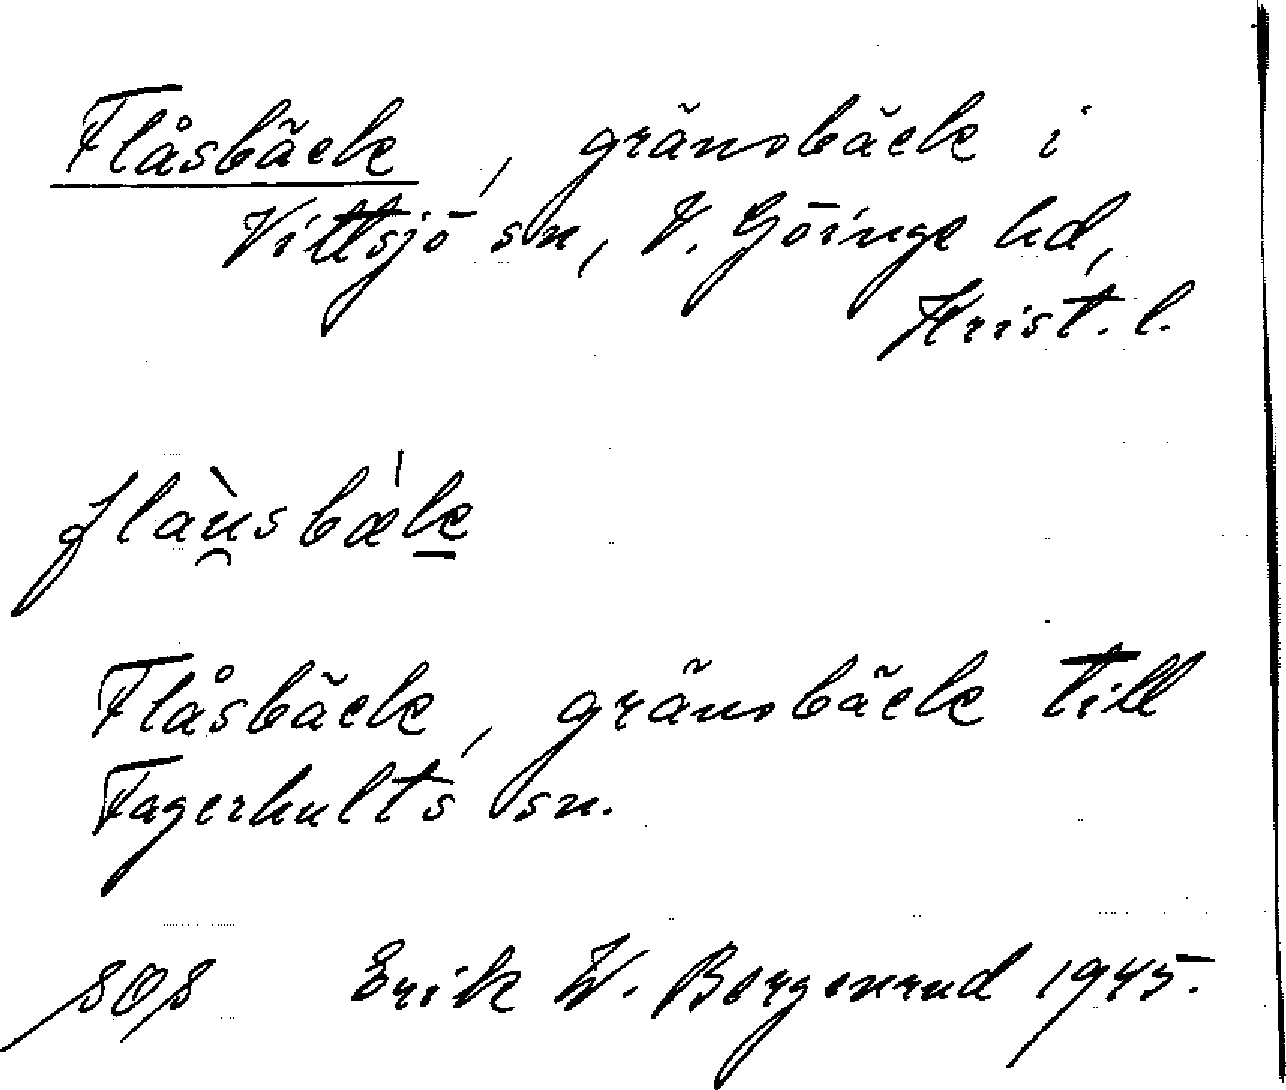 Flåsbäck, gränsbäck i
Vittsjö sn, V. Göinge hd,
Krist. l.
flàu̯sbæ̍k
Flåsbäck, gränsbäck till
Fagerhults sn.
SOS Erik W. Bergenrud 1945.